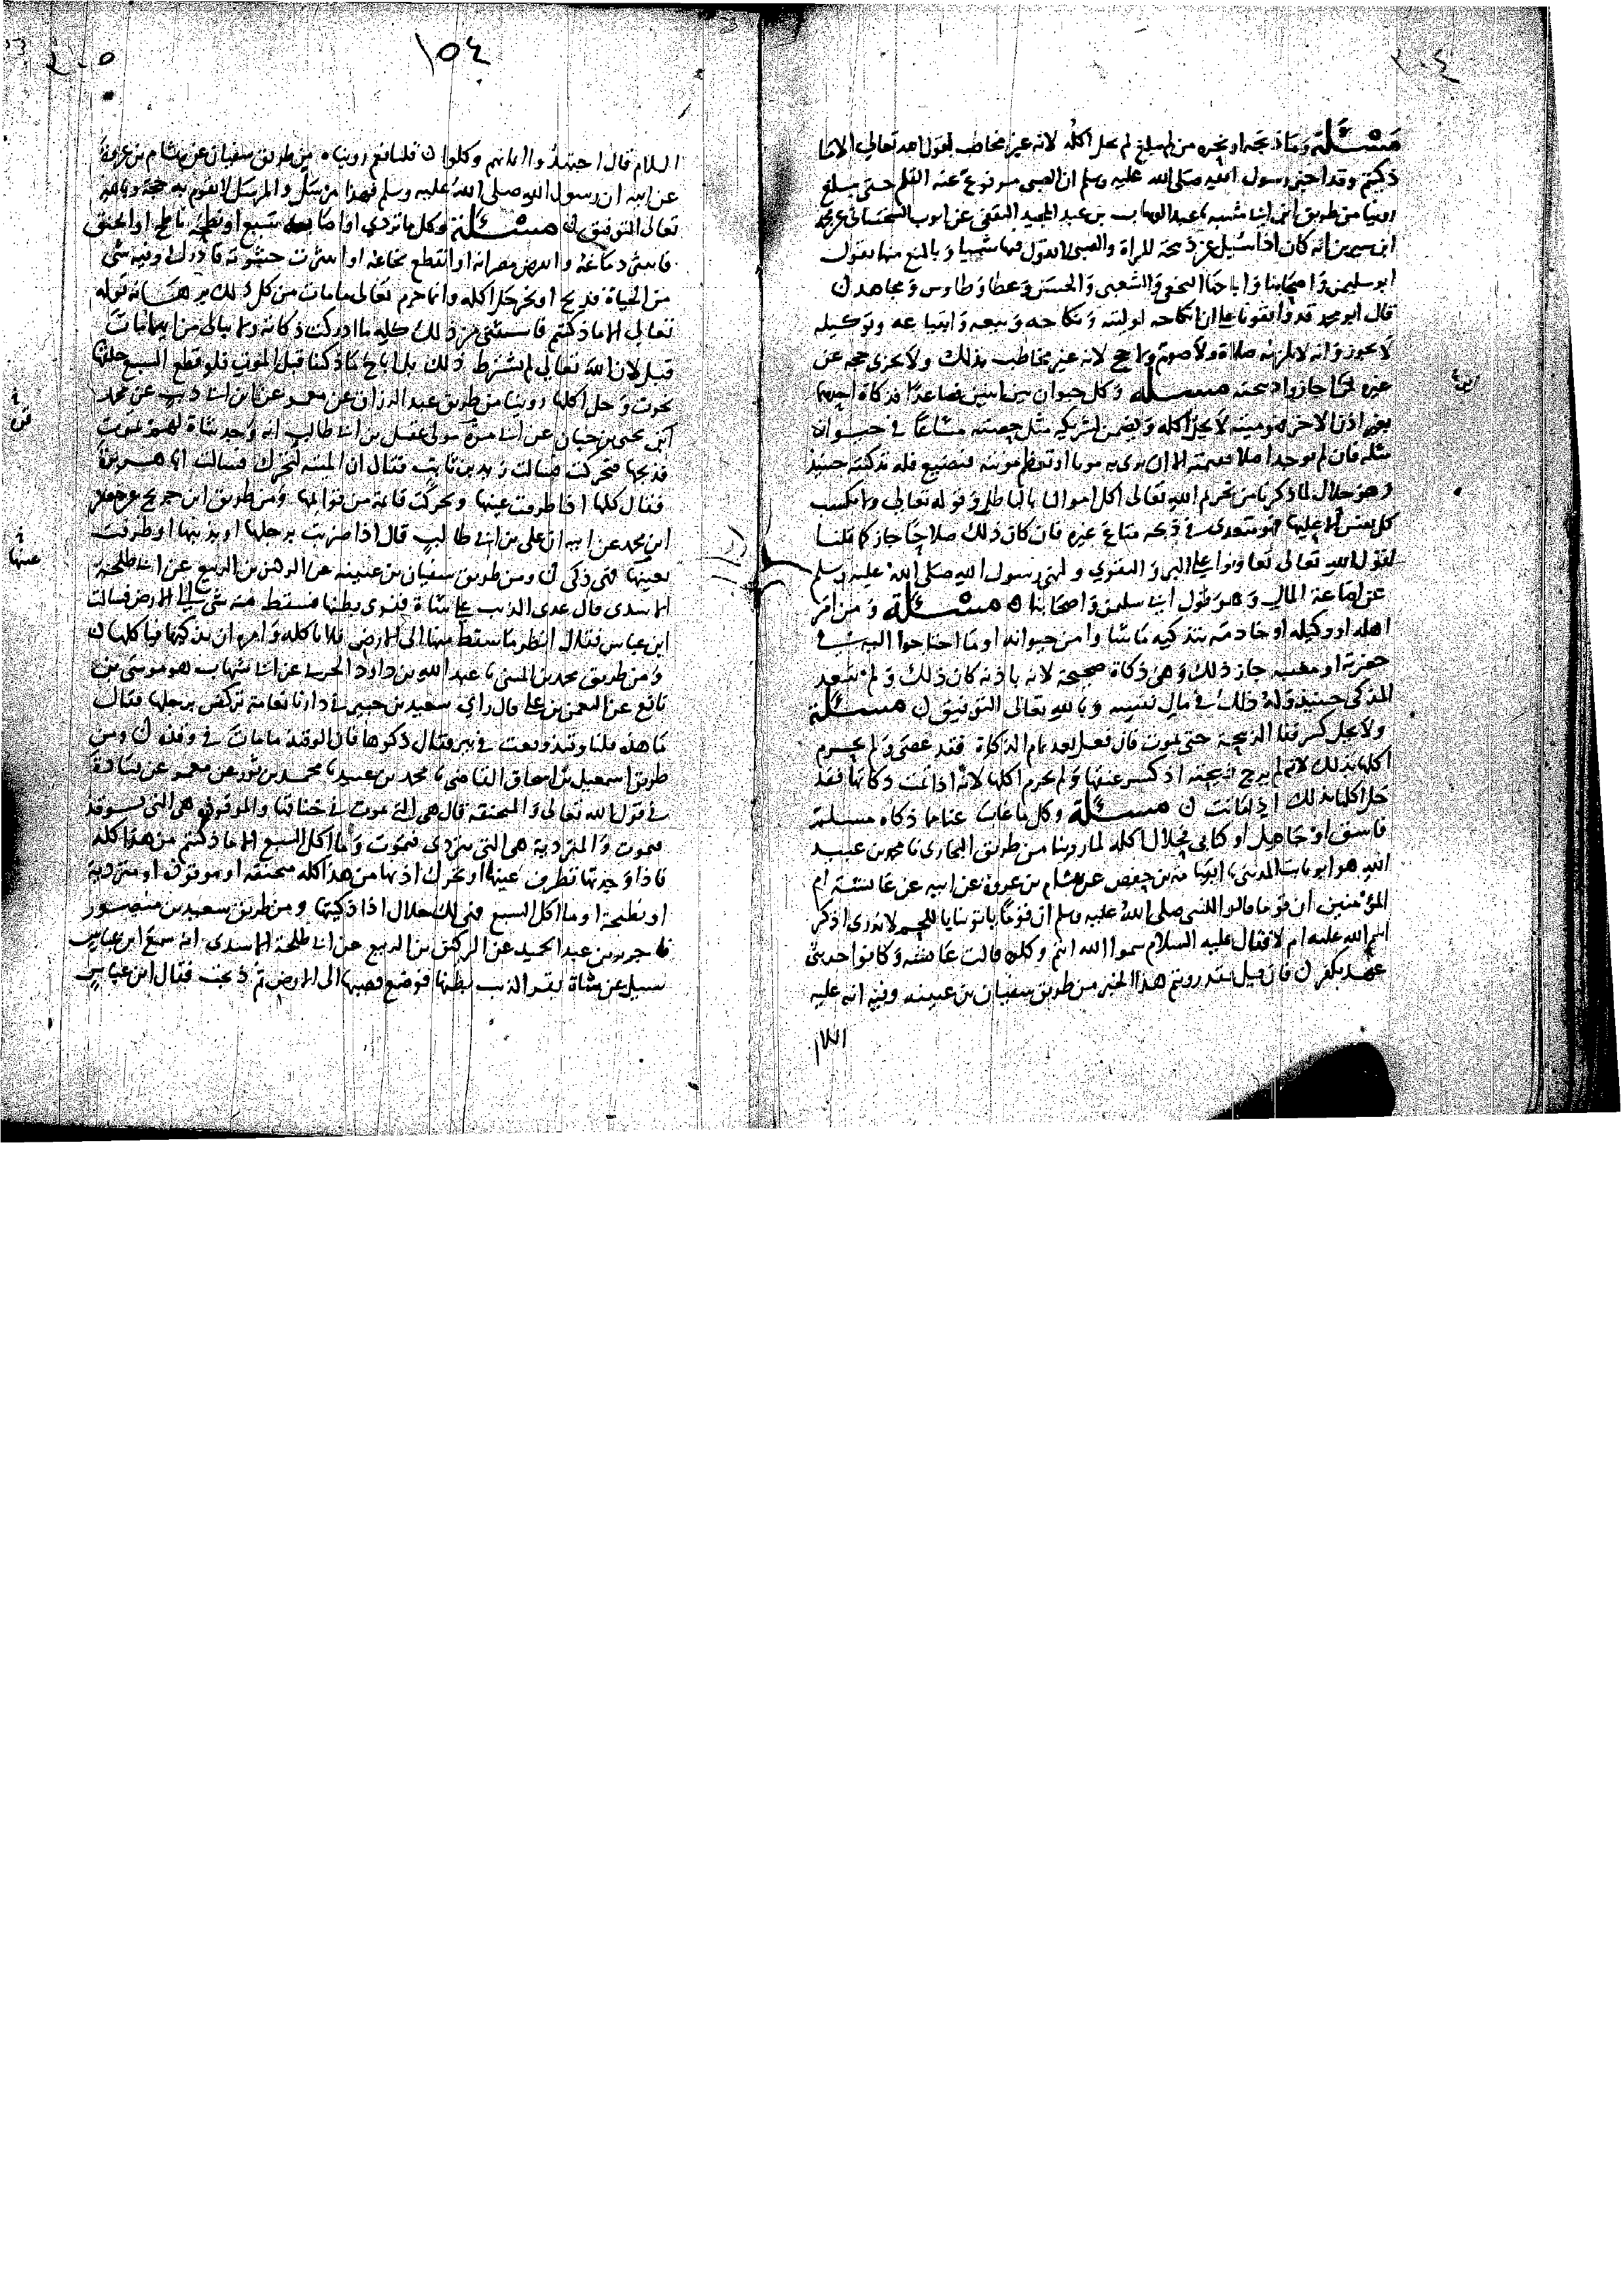 ٢٠٤
مسئلة وما ذبحه او نحره من لم يبلغ لم يحل اكله لانه غير مخاطب بقول الله تعالى الا ما
ذكيتم وقد اخبر رسول الله صلى الله عليه وسلم ان الصبي مرفوع عنه القلم حتى يبلغ
روينا من طريق ابن ابي شيبه نا عبد الوهاب بن عبد المجيد الثقفي عن ايوب السختياني عن محمد
ابن سيرين انه كان اذا سئل عن ذبيحة المراة والصبي لا يقول فيها شيا وبالمنع منها يقول
ابو سليمن واصحابنا واباحها النخعي والشعبي والحسن وعطا وطاوس ومجاهد ن
قال ابو محمد قد وافقونا على ان انكاحه لوليته ونكاحه وبيعه وابتياعه وتوكيله
لا يجوز وانه لا تلزمه صلاة ولا صوم ولا حج لانه غير مخاطب بذلك ولا يجزى حجه عن
غيره فمتى اجازوا ذبيحته مسئلة وكل حيوان بين اثنين فصاعدا فذكاه احدهما
بغير اذن الاخر فهو ميتة لا يحل اكله ويضمن لشريكه مثل حصته مشاعا في حيوان
مثله فان لم يوجد اصلا فقيمته الا ان يرى به موتا او تعظم مونته فيضيع فله تذكيته حينيذ
وهو حلال لما ذكرنا من تحريم الله تعالى اكل اموالنا بالباطل وقوله تعالى ولا تكسب
كل نفس الا عليها فهو متعدى في ذبحه متاع غيره فان كان ذلك صلاحا جاز كما قلنا
لقول الله تعالى تعاونوا على البر والتقوى ونهى رسول الله صلى الله عليه وسلم
عن اضاعة المال وهو قول ابي سليمن واصحابنا ن مسئلة ومن امر
اهله او وكيله او خادمه بتذكيه ما شا وا من حيوانه او ما احتاجوا اليه في
حضرته او مغيبه جاز ذلك وهي ذكاة صحيحة لانه باذنه كان ذلك ولم يتعد
المذكى حينيذ وله ذلك في مال نفسه وبالله تعالى التوفيق ن مسئلة
ولا يحل كسر قفا الذبيحة حتى تموت فان فعل بعد تمام الذكاة فقد عصى ولم يحرم
اكلها بذلك لانه لم يرح ذبيحته اذ كسر عنقها ولم يحرم اكلها لانه اذا تمت ذكاتها فقد
حل اكلها بذلك اذ ماتت ن مسئلة وكل ما غاب عنا مما ذكاه مسلم
فاسق او جاهل او كتابي فحلال اكله لما روينا من طريق البخاري نا محمد بن عبيد
الله هو ابو ثابت المدني نا اسامة بن حفص عن هشام بن عروة عن ابيه عن عائشة ام
المؤمنين ان قوما قالوا للنبي صلى الله عليه وسلم ان قوما ياتوننا باللحم لا ندري اذكر
اسم الله عليه ام لا فقال عليه السلام سموا الله انتم وكلوه قالت عائشه وكانوا حديثي
عهد بكفر ن فان قيل فقد رويتم هذا الخبر من طريق سفيان بن عيينه وفيه انه عليه
السلام
١٥٤
٢٠٥
السلام قال اجتهدوا ايمانهم وكلوا ن قلنا نعم رويناه من طريق سفيان عن هشام بن عروة
عن ابيه ان رسول الله صلى الله عليه وسلم فهذا مرسل والمرسل لا تقوم به حجة وبالله
تعالى التوفيق ن مسئلة وكل ما تردى او اصابه سبع او نطحه ناطح او انخنق
فانتثر دماغه او انقرض مصرانه او انقطع نخاعه او انتثرت حشوته فادرك وفيه شي
من الحياة فذبح او نحر حل اكله وانما حرم تعالى ما مات من كل ذلك برهان قوله
تعالى الا ما ذكيتم فاستثنى من ذلك كله ما ادركت ذكاته ولا نبالي من ايها مات
قبل لان الله تعالى لم يشترط ذلك بل اباح ما ذكينا قبل الموت فلو قطع السبع حلقها
نحرت وحل اكلها روينا من طريق عبد الرزاق عن معمر عن ابن ابي ذيب عن محمد
ابن يحيى بن حبان عن ابي مرة مولى عقيل بن ابي طالب انه وجد شاة لهم تموت
فذبحها فتحركت فسالت زيد بن ثابت فقال ان الميتة لتتحرك فسالت ابا هريرة
فقال كلها اذا طرفت عينها وتحركت قائمة من قوائمها ومن طريق ابن جريج عن جعفر
ابن محمد عن ابيه ان علي بن ابي طالب قال اذا ضربت برجلها او بذنبها او طرفت
بعينها فهي ذكي ن ومن طريق سفيان بن عيينه عن الركين بن الربيع عن ابي طلحة
الاسدى قال عدى الذيب على شاة ففرى بطنها فسقط منه شي الى الارض فسالت
ابن عباس فقال انظر ما سقط منها الى الارض فلا تاكله وامره ان يذكيها فياكلها ن
ومن طريق محمد بن المثنى نا عبد الله بن داود الخريبي عن ابي شهاب هو موسى بن
نافع عن النعمن بن علي قال راى سعيد بن جبير في دارنا نعامة تركض برجلها فقال
ما هذه قلنا وقيذ وقعت في بير فقال ذكوها فان الوقيذ ما مات في وقذه ن ومن
طريق اسمعيل بن اسحاق القاضي نا محمد بن عبيد نا محمد بن ثور عن معمر عن قتادة
في قول الله تعالى والمنخنقه قال هي التي تموت في خناقها والموقوذة هي التي توقذ
فتموت والمتردية هي التي تتردى فتموت وما اكل السبع الا ما ذكيتم من هذا كله
فاذا وجدتها تطرف عينها او تحرك اذنها من هذا كله منخنقه او موقوذة او متردية
او نطيحة او ما اكل السبع فهي لك حلال اذا ذكيتها ومن طريق سعيد بن منصور
نا جرير بن عبد الحميد عن الركين بن الربيع عن ابي طلحة الاسدى انه سمع ابن عباس
سيل عن شاة بقر الذيب بطنها فوضع قصبها الى الارض ثم ذبحت فقال ابن عباس